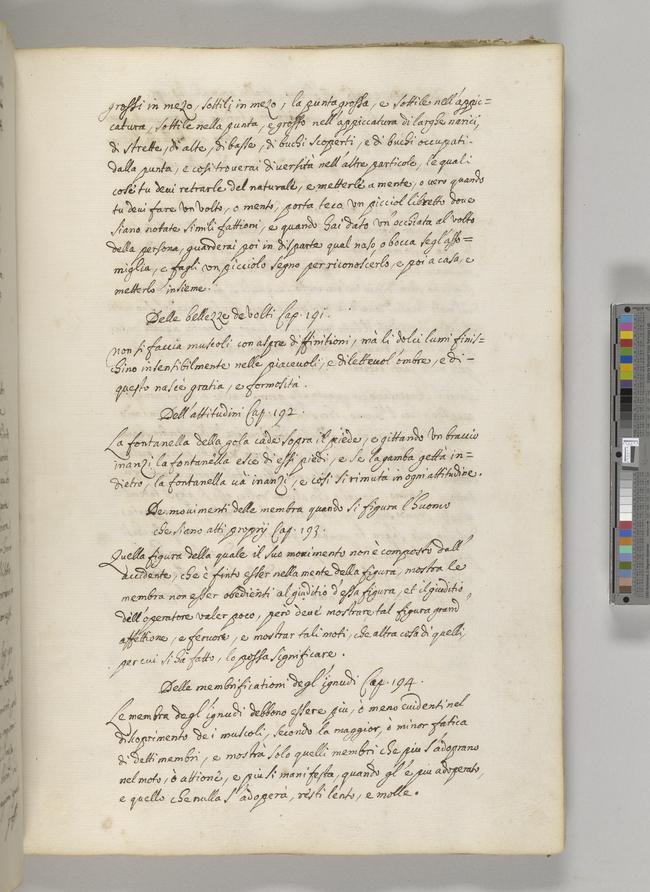 grossi in mezo, sottili in mezo; la punta grossa, e sottile nell'appic=
catura, sottile nella punta, e grosso nell'appiccatura di larghe narici,
di strette, di alte, di basse, di buchi scoperti, e di buchi occupati
dalla punta, e così troverai diversità nell'altre particole, le quali
cose tu devi retrarle del naturale, e metterle a mente, o vero quando
tu devi fare un volto, o mento, porta teco un picciol libretto dove
siano notate simili fattioni, e quando hai dato un'occhiata al volto
della persona, guarderai poi in disparte qual naso, o bocca se gl'asso=
miglia, e fagli un picciolo segno per riconoscerlo, e poi a casa, e
metterlo insieme.
Delle bellezze de volti Cap. 191.
non si faccia muscoli con aspre diffinitioni, mà li dolci lumi finis=
chino insensibilmente nelle piacevoli, e dilettevol'ombre, e di
questo nasce gratia, e formosità.
Dell'attitudini Cap. 192.
La fontanella della gola cade sopra il piede, e gittando un braccio
inanzi la fontanella esce di essi piedi, e se la gamba getta in=
dietro, la fontanella và inanzi, e così si rimuta in ogni attitudine.
De movimenti delle membra quando si figura l'huomo
che siano atti proprij Cap. 193.
Quella figura della quale il suo movimento non è composto dall'
accidente, che è finto esser nella mente della figura, mostra le
membra non esser obedienti al giuditio d'essa figura, et il giuditio
dell'operatore valer poco, però deve mostrare tal figura grand'
affettione, e fervore, e mostrar tali moti, che altra cosa di quelli
per cui si hà fatto, lo possa significare.
Delle membrificationi degl'ignudi Cap. 194.
Le membra degl'ignudi debbono essere più, ò meno evidenti nel
discoprimento dei muscoli, secondo la maggior, ò minor fatica
di detti membri, e mostrà solo quelli membri che più s'adoprano
nel moto, ò attione, e più si manifesta, quando gl'è più adoperato,
e quello che nulla s'adopera, resti lento, e molle.